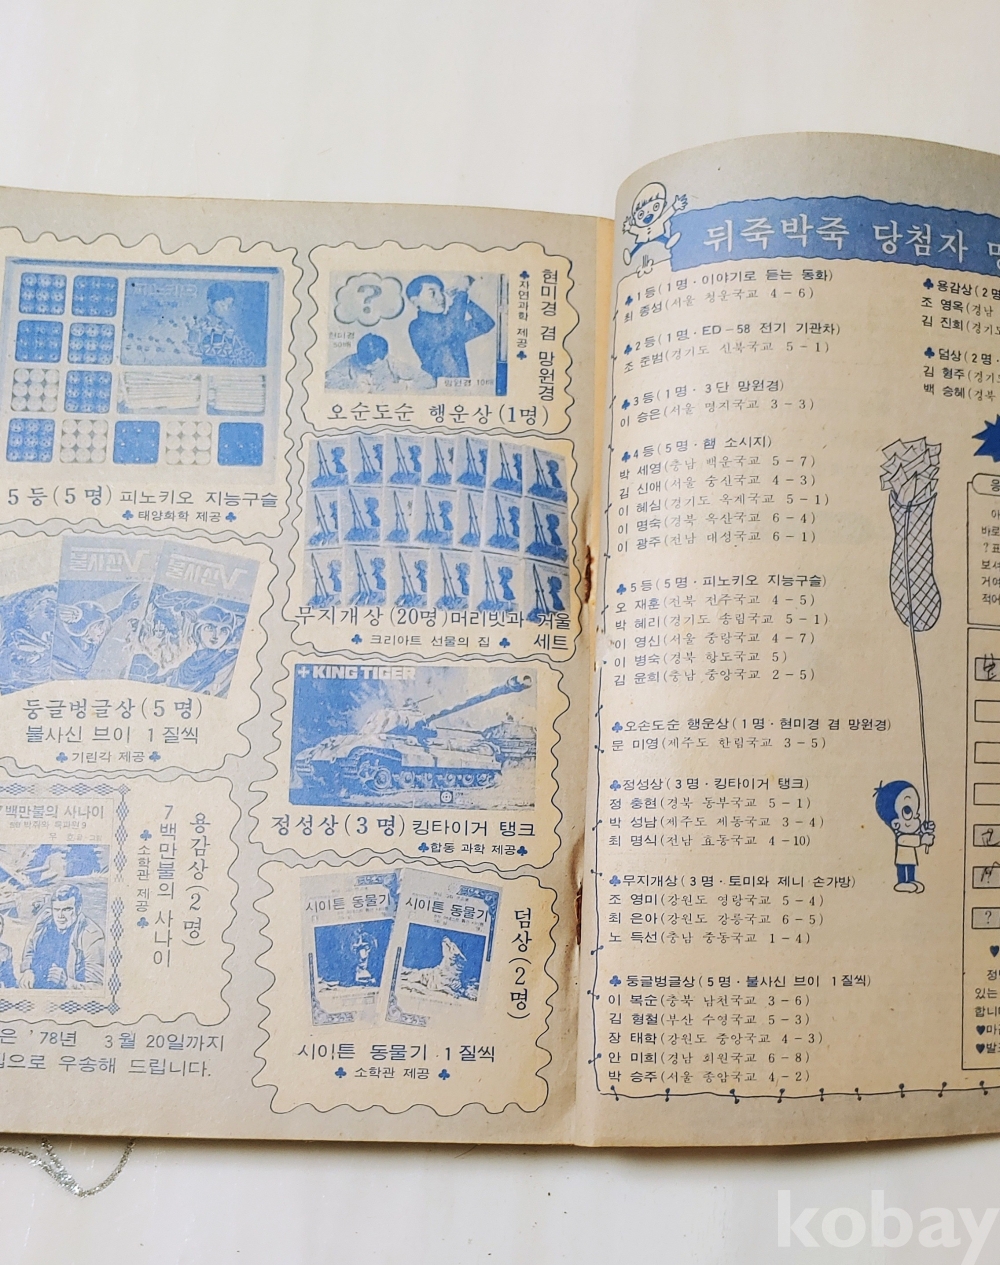 5등(5명) 피노키오 지능구슬
♣태양화학 제공♣
둥글벙글상(5명)
불사신 브이 1질씩
♣기린각 제공♣
7백만불의 사나이
용감상(2명)
7백만불의 사나이
♣소학관 제공♣
은 '78년 3월 20일까지
으로 우송해 드립니다.
?
현미경
50배
망원경 10배
현미경 겸 망원경
♣자연과학 제공♣
오순도순 행운상(1명)
무지개상(20명)머리빗과 거울
♣ 크리아트 선물의 집 ♣ 세트
KING TIGER
정성상(3명) 킹타이거 탱크
♣합동 과학 제공♣
시이튼 동물기
시이튼 동물기
덤상(2명)
시이튼 동물기 1질씩
♣ 소학관 제공 ♣
뒤죽박죽 당첨자
♣1등(1명·이야기로 듣는 동화)
최 종성(서울 청운국교 4-6)
♣2등(1명·ED-58 전기 기관차)
조 준범(경기도 신북국교 5-1)
♣3등(1명·3단 망원경)
이 승은(서울 명지국교 3-3)
♣4등(5명·햄 소시지)
박 세영(충남 백운국교 5-7)
김 신애(서울 숭신국교 4-3)
이 혜심(경기도 옥계국교 5-1)
이 명숙(경북 옥산국교 6-4)
이 광주(전남 대성국교 6-1)
♣5등(5명·피노키오 지능구슬)
오 재훈(전북 전주국교 4-5)
박 혜리(경기도 송림국교 5-1)
이 영신(서울 중랑국교 4-7)
이 병숙(경북 항도국교 5)
김 윤희(충남 중앙국교 2-5)
♣오손도순 행운상(1명·현미경 겸 망원경)
문 미영(제주도 한림국교 3-5)
♣정성상(3명·킹타이거 탱크)
정 충현(경북 동부국교 5-1)
박 성남(제주도 제동국교 3-4)
최 명식(전남 효동국교 4-10)
♣무지개상(3명·토미와 제니 손가방)
조 영미(강원도 영랑국교 5-4)
최 은아(강원도 강릉국교 6-5)
노 득선(충남 중동국교 1-4)
♣둥글벙글상(5명·불사신 브이 1질씩)
이 복순(충북 남천국교 3-6)
김 형철(부산 수영국교 5-3)
장 태학(강원도 중앙국교 4-3)
안 미희(경남 회원국교 6-8)
박 승주(서울 종암국교 4-2)
♣용감상(2명
조 영옥(경남
김 진희(경기도
♣덤상(2명·
김 형주(경기
백 승혜(경북
바로
?표
보셔
거여
적어
?
있는
합니
♥마감
♥발표
kobay